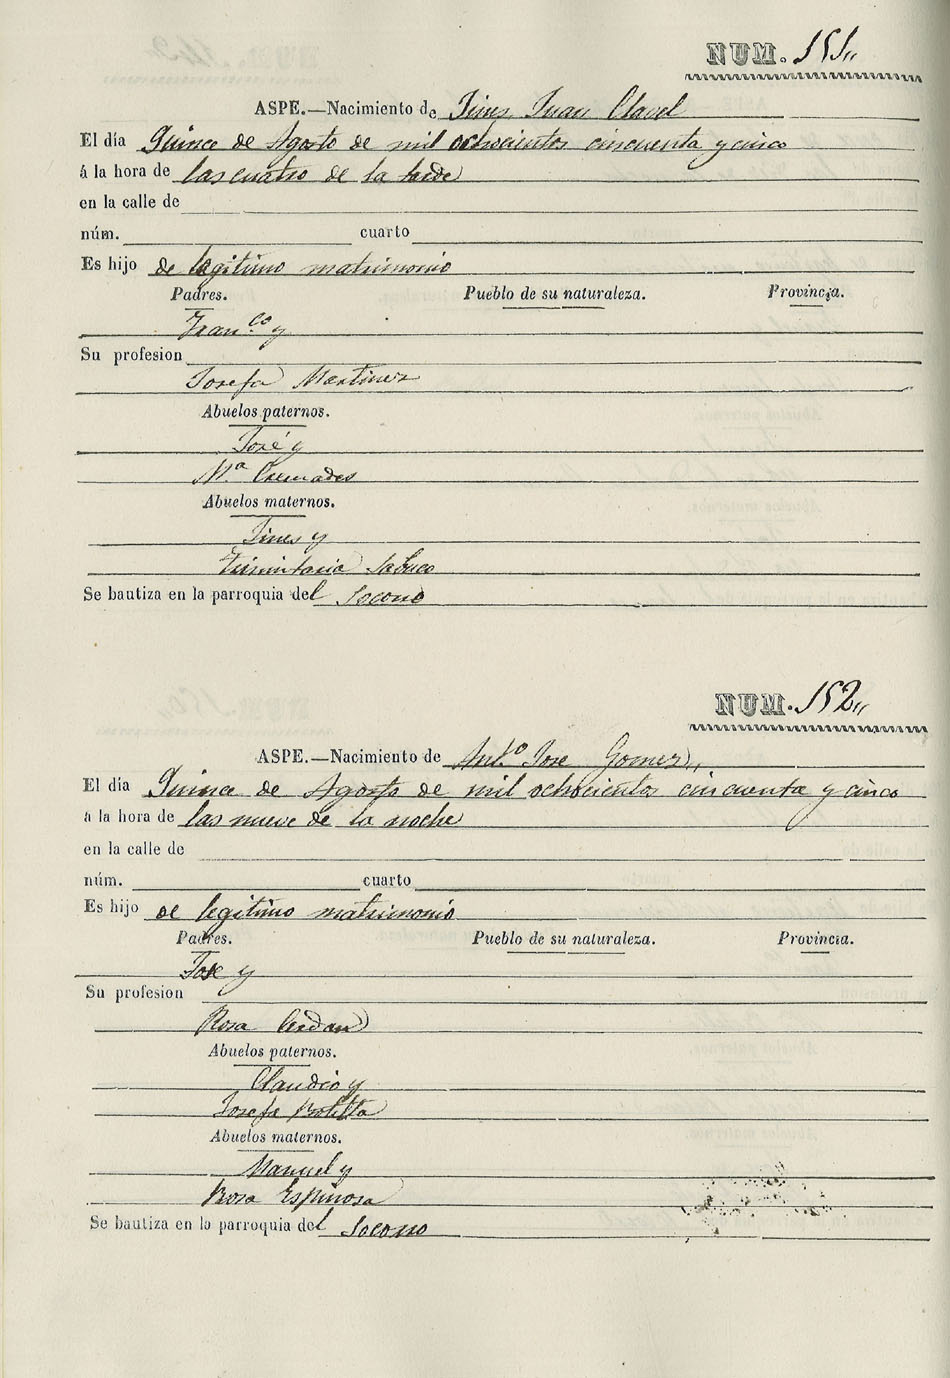 NUM. 151,,
ASPE.—Nacimiento de Jines Juan Clavel
El día Quince de Agosto de mil ochocientos cincuenta y cinco
á la hora de las cuatro de la tarde
en la calle de
núm. cuarto
Es hijo de legitimo matrimonio
Padres. Pueblo de su naturaleza. Provincia.
Fran.co y
Su profesion
Josefa Martinez
Abuelos paternos.
José y
M.a Cremades
Abuelos maternos.
Jines y
Trinitaria Sabuco
Se bautiza en la parroquia del Socorro
NUM. 152,,
ASPE.—Nacimiento de Ant.o Jose Gomez,,
El día Quince de Agosto de mil ochocientos cincuenta y cinco
á la hora de las nueve de la noche
en la calle de
núm. cuarto
Es hijo de legitimo matrimonio
Padres. Pueblo de su naturaleza. Provincia.
Jose y
Su profesion
Rosa Cerdan
Abuelos paternos.
Claudio y
Josefa Botella
Abuelos maternos.
Manuel y
Rosa Espinosa
Se bautiza en la parroquia del Socorro